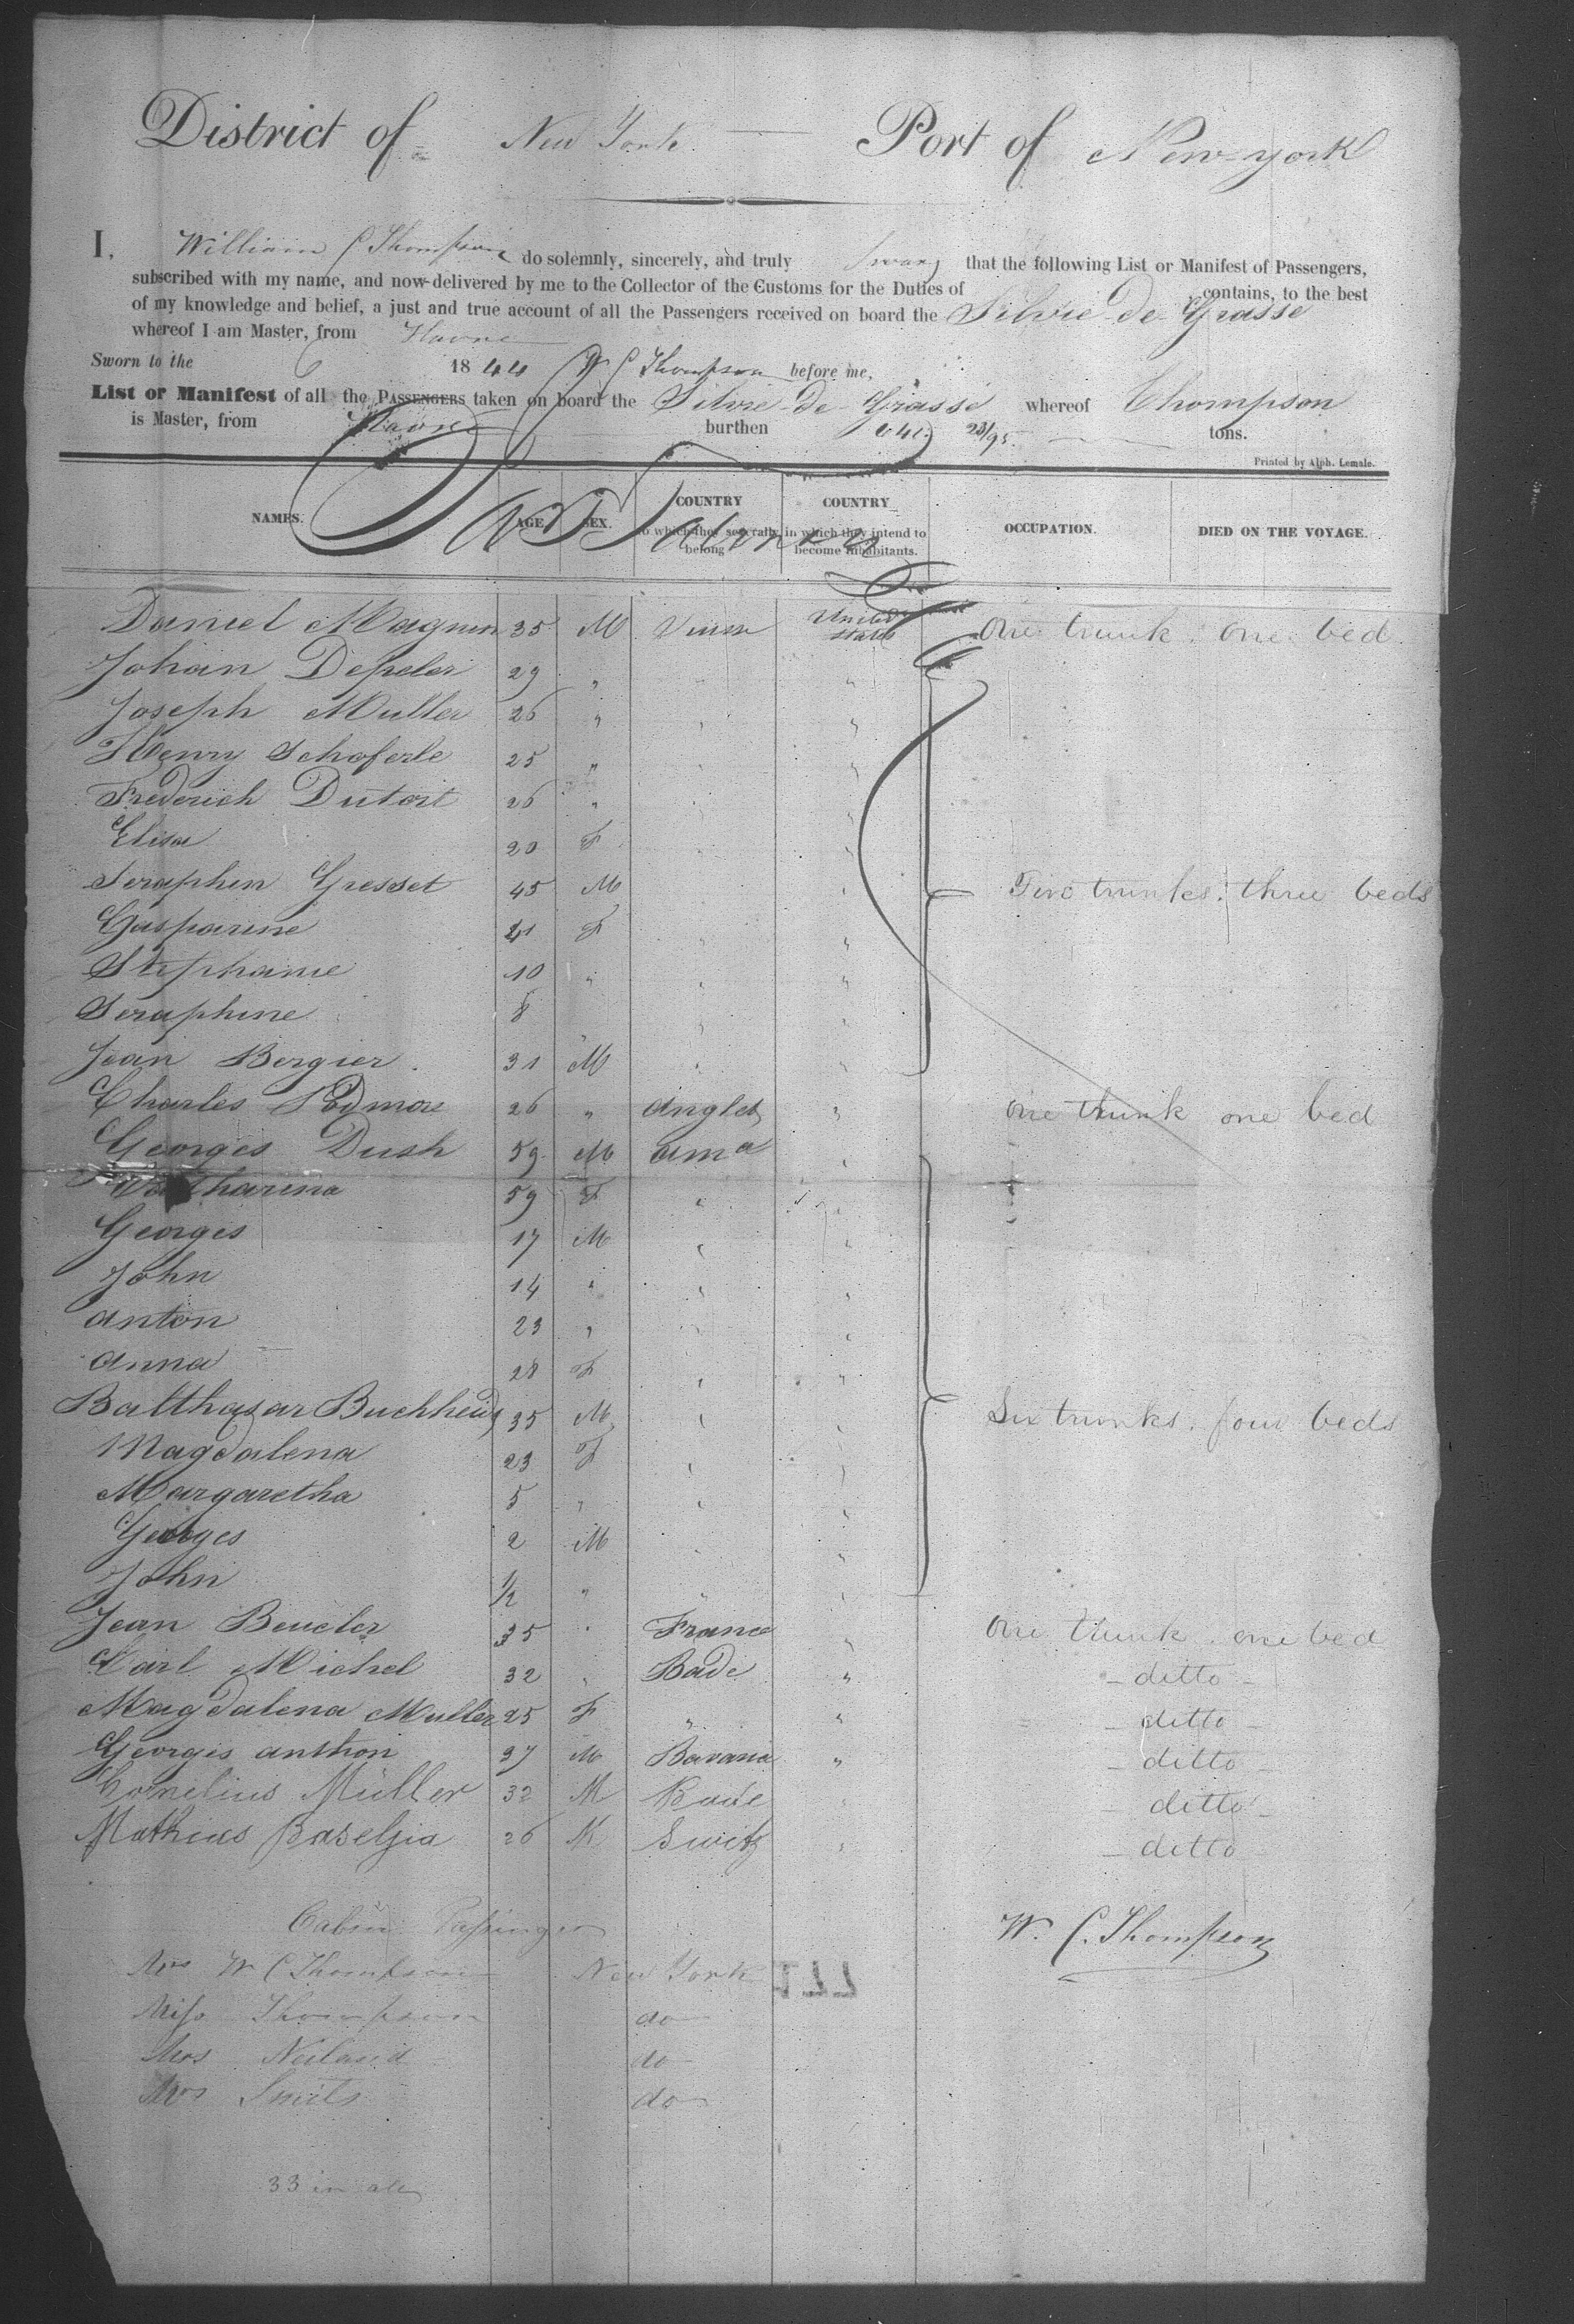 District of New York Port of New-york
I, William C Thompson do solemnly, sincerely, and truly Swear that the following List or Manifest of Passengers,
subscribed with my name, and now delivered by me to the Collector of the Customs for the Duties of contains, to the best
of my knowledge and belief, a just and true account of all the Passengers received on board the Silvie-de-Grasse
whereof I am Master, from Havre
Sworn to the 6 1844 W C Thompson before me,
List or Manifest of all the PASSENGERS taken on board the Silvie-de-Grasse whereof Thompson
is Master, from Havre burthen 641 23/95 tons.
Printed by Alph. Lemale.
NAMES. AGE. SEX. COUNTRY to which they severally belong COUNTRY in which they intend to become inhabitants. OCCUPATION. DIED ON THE VOYAGE.
Daniel Magnin 35 M United States One trunk. One bed
Johan Depeler 29 "
Joseph Muller 26 " "
Henry Schoferle 25 " "
Frederich Dutoit 26 "
Elisa 20 F
Seraphin Gresset 45 M Two trunks. three beds
Gasparine 41 F "
Stephanie 10 " "
Seraphine 8 "
Jean Bergier 31 M "
Charles Pedmore 26 " anglet " One trunk one bed
Georges Dush 59 M ama "
Catharina 59 F "
Georges 17 M " "
John 14 " " "
anton 23 " "
anna 28 F " "
Balthazar Buchheid 35 M " " Six trunks. four beds
Magdalena 23 F " "
Margaretha 5 " " "
Georges 2 M "
John 1/2 " " "
Jean Beucler 35 " France " One trunk. one bed
Carl Michel 32 " Bade " - ditto -
Magdalena Muller 25 F " " - ditto -
Georges anthon 37 M Bavaria " - ditto -
Cornelius Müller 32 M Bade " - ditto -
Mathias Baselgia 26 M Switz " - ditto -
Cabin Passengers
W. C. Thompson
Mrs W C Thompson New York
177
Miss Thompson do
Mrs do
Mrs Smith do
33 in all